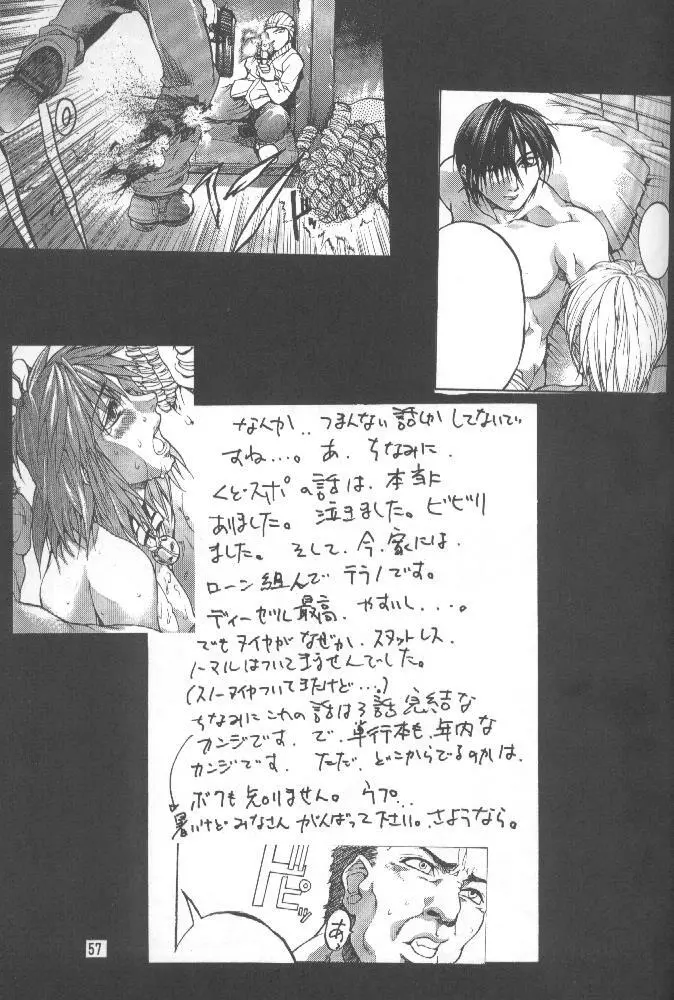 なんか.. つまんない話しか してないで
すね…。 あ、ちなみに、
くど・スポ の話は、本当に
ありました。 泣きました。ビビリ
ました。 そして、今、家には、
ローン組んで テラノです。
ディーゼル最高、やすいし....。
でもタイヤがなぜか、スタットレス、
ノーマルはついてきませんでした。
(スノータイヤついてきたけど…。)
ちなみにこれの話は3話完結な
カンジです、で、単行本も、年内な
カンジです、 ただ、どこからでるのかは、
ボクも知りません。ウプ...
暑いけど みなさん がんばって下さい。さようなら。
ピッ
あ、
57